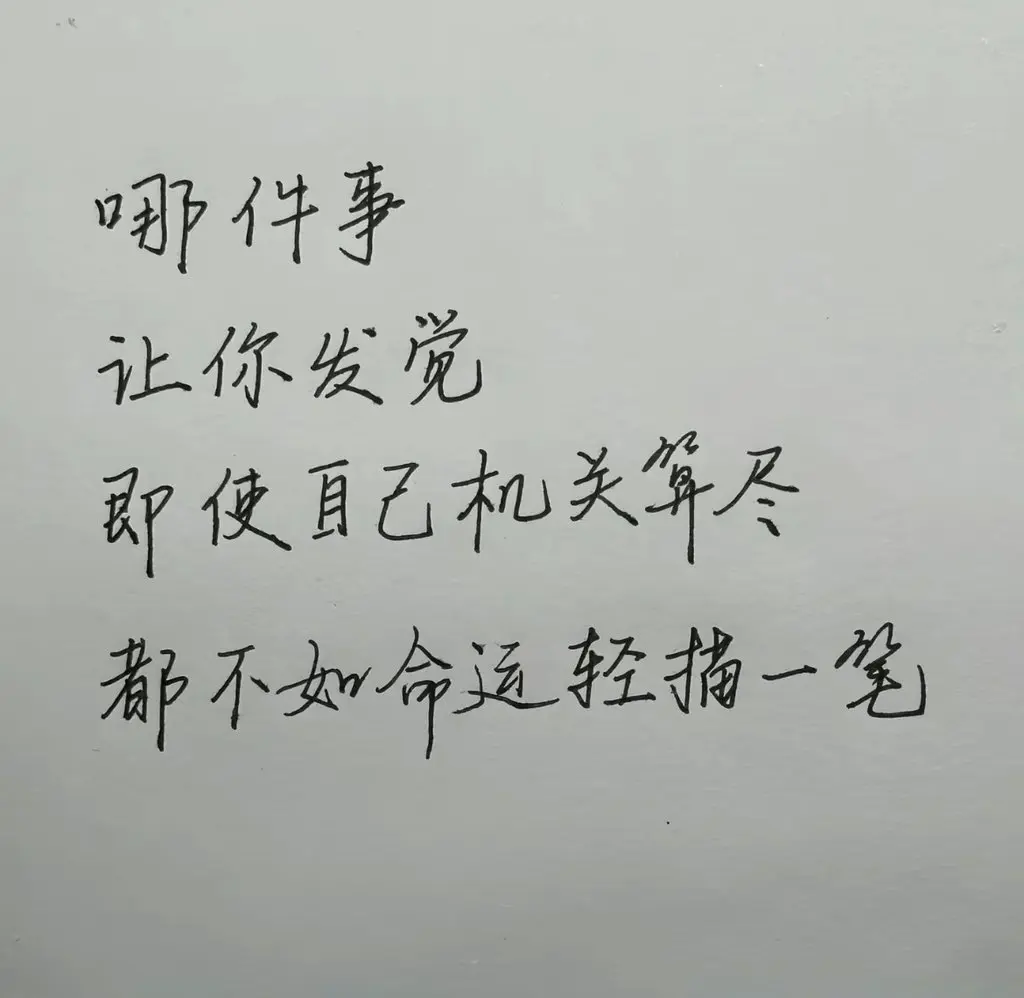 哪件事
让你发觉
即使自己机关算尽
都不如命运轻描一笔